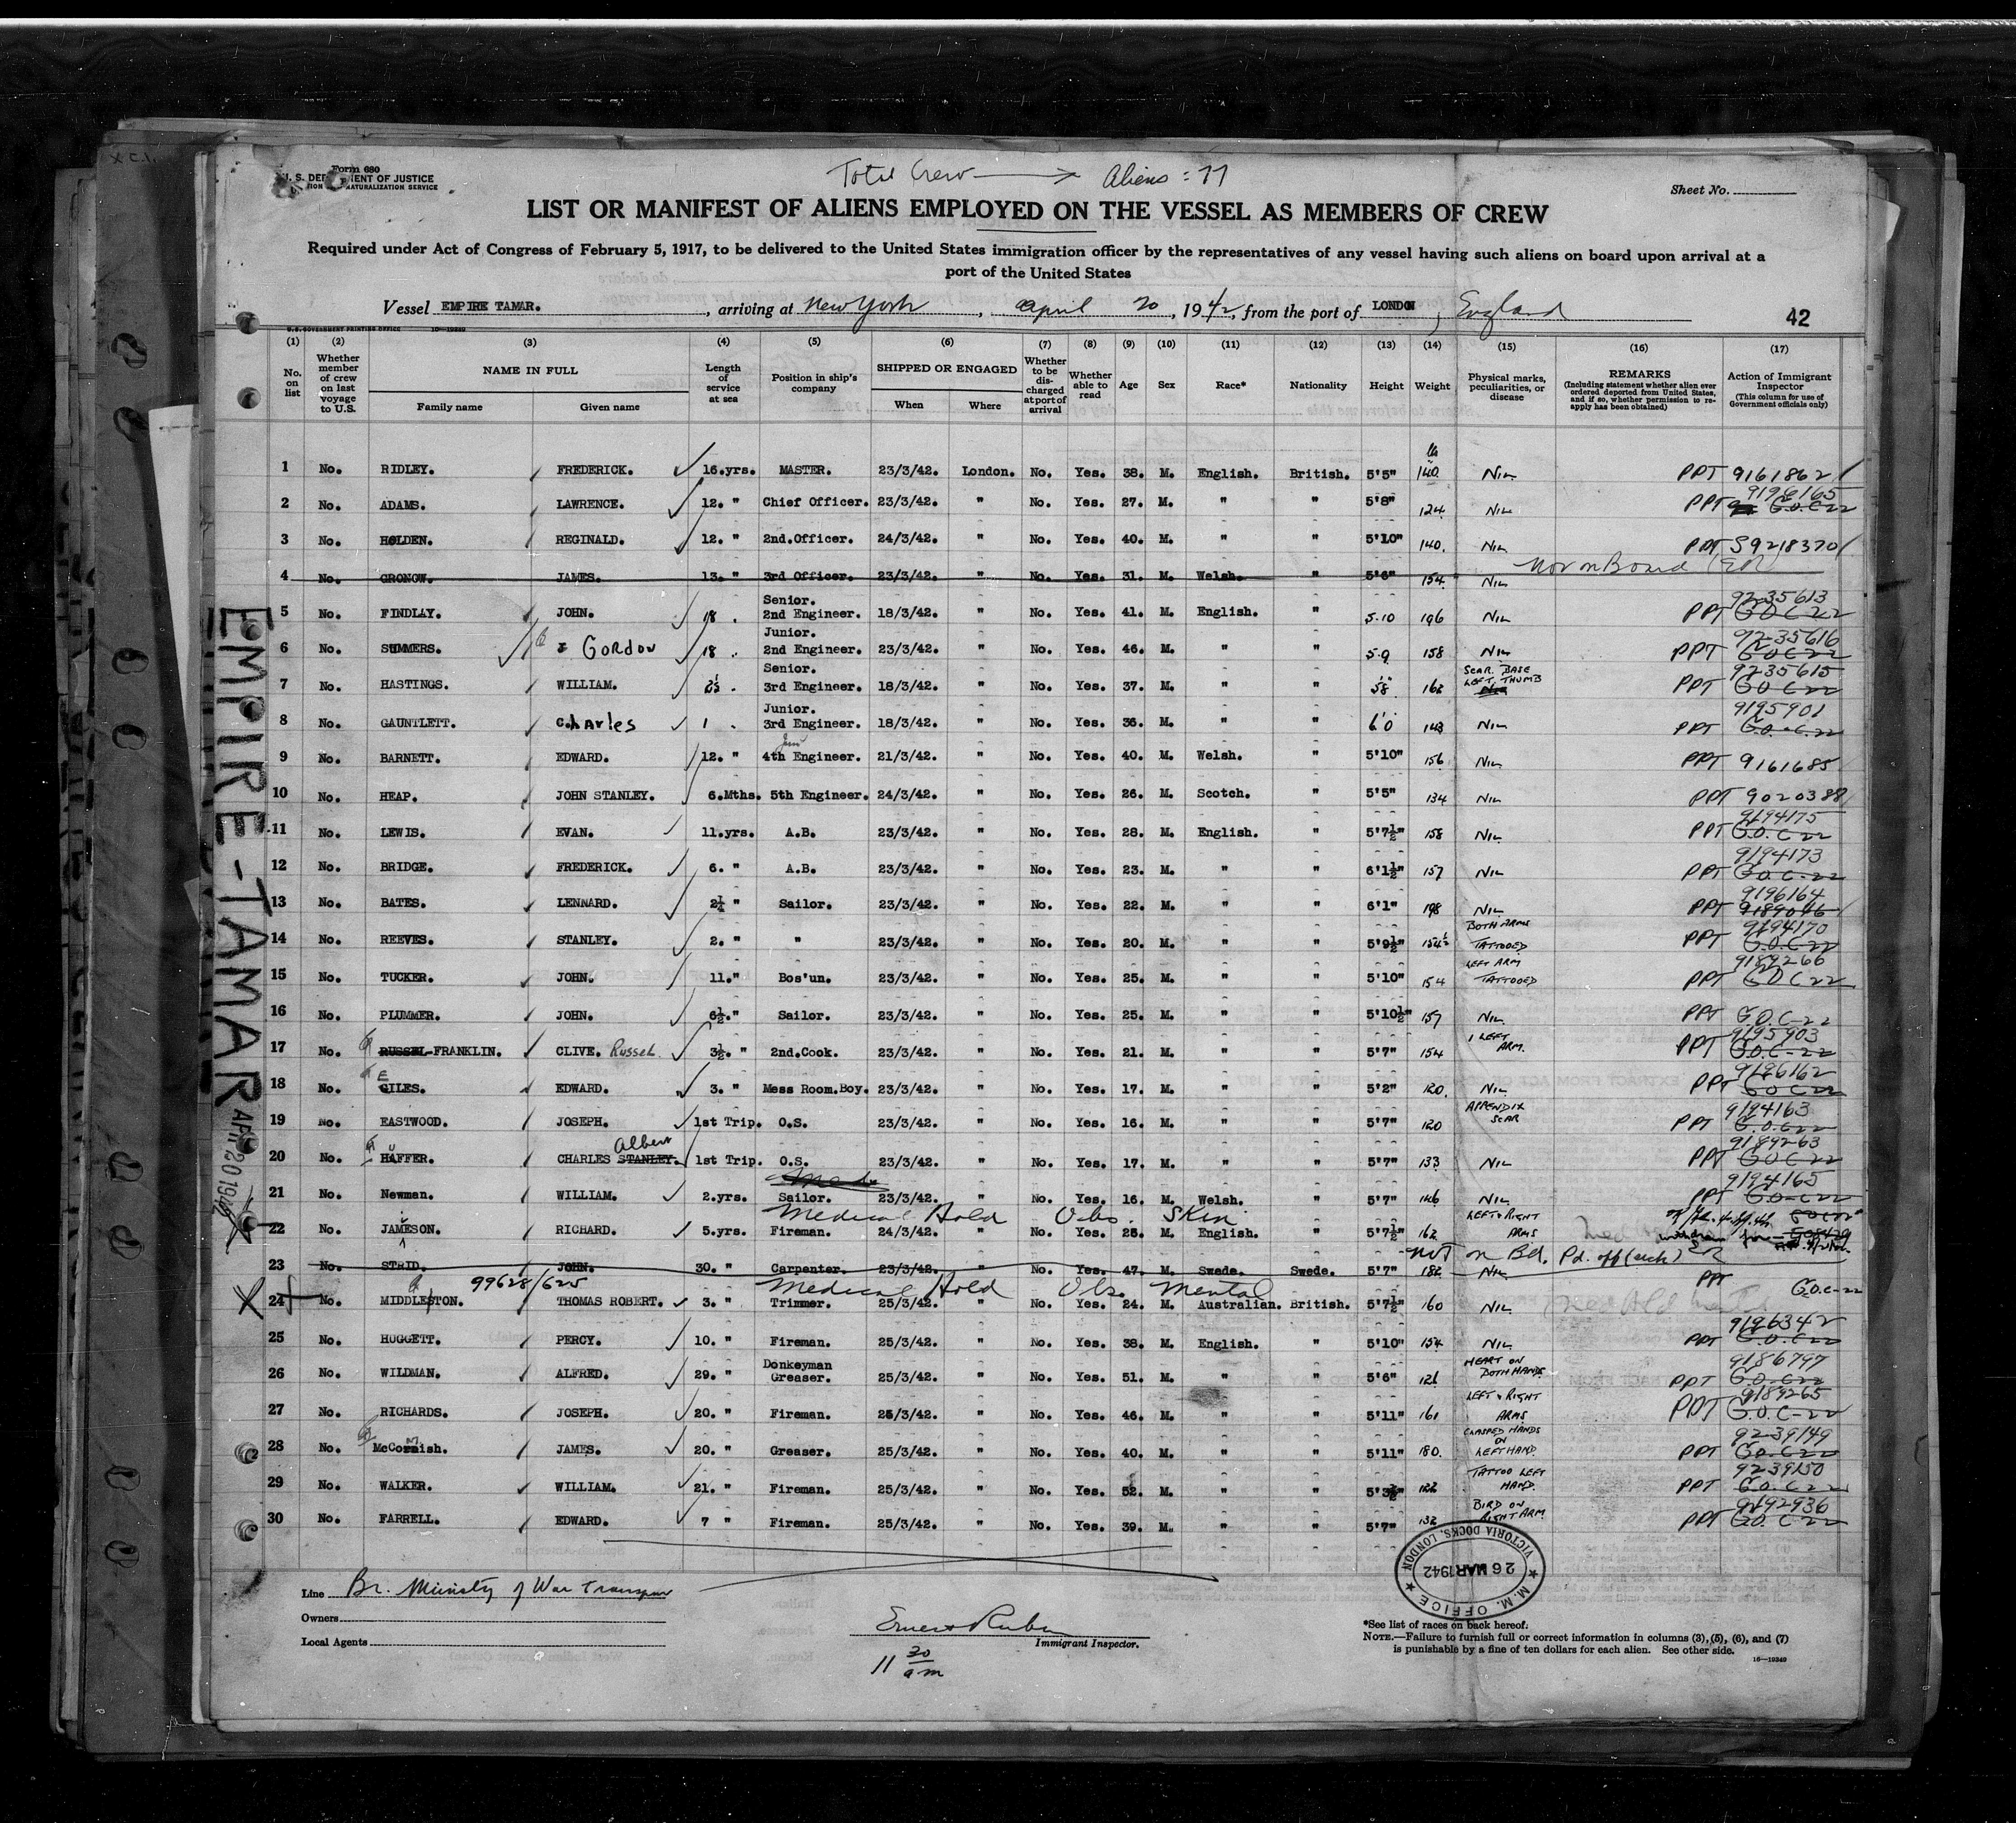 Form 680
U. S. DEPARTMENT OF JUSTICE
NATURALIZATION SERVICE
Total Crew → Aliens = 77
Sheet No.
LIST OR MANIFEST OF ALIENS EMPLOYED ON THE VESSEL AS MEMBERS OF CREW
Required under Act of Congress of February 5, 1917, to be delivered to the United States immigration officer by the representatives of any vessel having such aliens on board upon arrival at a
port of the United States
Vessel EMPIRE TAMAR., arriving at New York, April 20, 1942, from the port of LONDON, England
42
U.S. GOVERNMENT PRINTING OFFICE 16—19349
(1) (2) (3) (4) (5) (6) (7) (8) (9) (10) (11) (12) (13) (14) (15) (16) (17)
No. on list
Whether member of crew on last voyage to U.S.
NAME IN FULL
Family name
Given name
Length of service at sea
Position in ship's company
SHIPPED OR ENGAGED
When
Where
Whether to be discharged at port of arrival
Whether able to read
Age
Sex
Race*
Nationality
Height
Weight
Physical marks, peculiarities, or disease
REMARKS
(Including statement whether alien ever ordered deported from United States, and if so, whether permission to reapply has been obtained)
Action of Immigrant Inspector
(This column for use of Government officials only)
1 No. RIDLEY. FREDERICK. 16.yrs. MASTER. 23/3/42. London. No. Yes. 38. M. English. British. 5'5" 140 Nil PPT 9161862
2 No. ADAMS. LAWRENCE. 12. " Chief Officer. 23/3/42. " No. Yes. 27. M. " " 5'8" 124. Nil PPT 9196165 G.O.C 22
3 No. HOLDEN. REGINALD. 12. " 2nd.Officer. 24/3/42. " No. Yes. 40. M. " " 5'10" 140. Nil PPT S9218370
4 No. GRONOW. JAMES. 13. " 3rd Officer. 23/3/42. " No. Yes. 31. M. Welsh. " 5'6" 154. Nil Not on Board (ER)
5 No. FINDLAY. JOHN. 18 . Senior. 2nd Engineer. 18/3/42. " No. Yes. 41. M. English. " 5.10 196 Nil PPT 9235613 G.O.C 22
6 No. SUMMERS. J Gordon 18 . Junior. 2nd Engineer. 23/3/42. " No. Yes. 46. M. " " 5.9 158 Nil PPT 9235616 G.O.C 22
7 No. HASTINGS. WILLIAM. Senior. 3rd Engineer. 18/3/42. " No. Yes. 37. M. " " 5'8" 162 SCAR BASE LEFT THUMB Nil PPT 9235615 G.O.C 22
8 No. GAUNTLETT. Charles 1 . Junior. 3rd Engineer. 18/3/42. " No. Yes. 36. M. " " 6'0 143 Nil PPT 9195901 G.O.C.22
9 No. BARNETT. EDWARD. 12. " 4th Engineer. 21/3/42. " No. Yes. 40. M. Welsh. " 5'10" 156 Nil PPT 9161685
10 No. HEAP. JOHN STANLEY. 6.Mths. 5th Engineer. 24/3/42. " No. Yes. 26. M. Scotch. " 5'5" 134 Nil PPT 9020388
11 No. LEWIS. EVAN. 11.yrs. A.B. 23/3/42. " No. Yes. 28. M. English. " 5'7½" 158 Nil PPT 9194175 G.O.C 22
12 No. BRIDGE. FREDERICK. 6. " A.B. 23/3/42. " No. Yes. 23. M. " " 6'1½" 157 Nil PPT 9194173 G.O.C-22
13 No. BATES. LENNARD. 2¼ " Sailor. 23/3/42. " No. Yes. 22. M. " " 6'1" 198 Nil PPT 9196164 9189046
14 No. REEVES. STANLEY. 2. " " 23/3/42. " No. Yes. 20. M. " " 5'9½" 154½ BOTH ARMS TATTOOED PPT 9194170 G.O.C-22
15 No. TUCKER. JOHN. 11." Bos'un. 23/3/42. " No. Yes. 25. M. " " 5'10" 154 LEFT ARM TATTOOED PPT 9189266 G.O.C 22
16 No. PLUMMER. JOHN. 6½." Sailor. 23/3/42. " No. Yes. 25. M. " " 5'10½" 157 Nil. PPT G.O.C-22
17 No. RUSSEL-FRANKLIN. CLIVE. Russel 3½. " 2nd.Cook. 23/3/42. " No. Yes. 21. M. " " 5'7" 154 1 LEFT ARM. PPT 9195903 G.O.C-22
18 No. GILES. E EDWARD. 3. " Mess Room.Boy. 23/3/42. " No. Yes. 17. M. " " 5'2" 120. Nil PPT 9196162 G.O.C 22
19 No. EASTWOOD. JOSEPH. 1st Trip. O.S. 23/3/42. " No. Yes. 16. M. " " 5'7" 120 APPENDIX SCAR PPT 9194163 G.O.C 22
20 No. HAFFER. u CHARLES STANLEY. Albert 1st Trip. O.S. 23/3/42. " No. Yes. 17. M. " " 5'7" 133 Nil PPT 9189263 G.O.C 22
21 No. Newman. WILLIAM. 2.yrs. Sailor. 23/3/42. " No. Yes. 16. M. Welsh. " 5'7" 146 Nil PPT 9194165 G.O-C 22
Medical Hold Obs. Skin
22 No. JAMESON. RICHARD. 5.yrs. Fireman. 24/3/42. " No. Yes. 28. M. English. " 5'7½" 162 LEFT & RIGHT ARMS
Not on Bd. Pd. off (sick) ER
23 No. STRID. JOHN. 30. " Carpenter. 23/3/42. " No Yes. 47. M. Swede. Swede. 5'7" 182 Nil
99628/625 Medical Hold Obs. Mental PPT G.O.C-22
24 No. MIDDLESTON. THOMAS ROBERT. 3. " Trimmer. 25/3/42. " No. Yes. 24. M. Australian. British. 5'7½" 160 Nil
25 No. HUGGETT. PERCY. 10. " Fireman. 25/3/42. " No. Yes. 38. M. English. " 5'10" 154 Nil PPT 9196342 G.O.C 22
26 No. WILDMAN. ALFRED. 29. " Donkeyman Greaser. 25/3/42. " No. Yes. 51. M. " " 5'6" 121 HEART ON BOTH HANDS PPT 9186797 G.O.C 22
27 No. RICHARDS. JOSEPH. 20. " Fireman. 25/3/42. " No. Yes. 46. M. " " 5'11" 161 LEFT & RIGHT ARMS PPT 9189265 G.O.C-22
28 No. McCornish. JAMES. 20. " Greaser. 25/3/42. " No. Yes. 40. M. " " 5'11" 180. CLASPED HANDS ON LEFT HAND PPT 9239149 G.O.C 22
29 No. WALKER. WILLIAM. 21. " Fireman. 25/3/42. " No. Yes. 52. M. " " 122 TATTOO LEFT HAND PPT 9239150 G.O.C 22
30 No. FARRELL. EDWARD. 7 " Fireman. 25/3/42. " No. Yes. 39. M. " " 5'7" 132 BIRD ON RIGHT ARM PPT 9192936 G.O.C-22
EMPIRE-TAMAR
APR 20 1942
M.M. OFFICE ★ VICTORIA DOCKS, LONDON ★
26 MAR 1942
Line Br. Ministry of War Transport
Owners
Local Agents
Ernest Rubin
Immigrant Inspector.
11 30 am
*See list of races on back hereof.
NOTE.—Failure to furnish full or correct information in columns (3), (5), (6), and (7)
is punishable by a fine of ten dollars for each alien. See other side.
16—19349